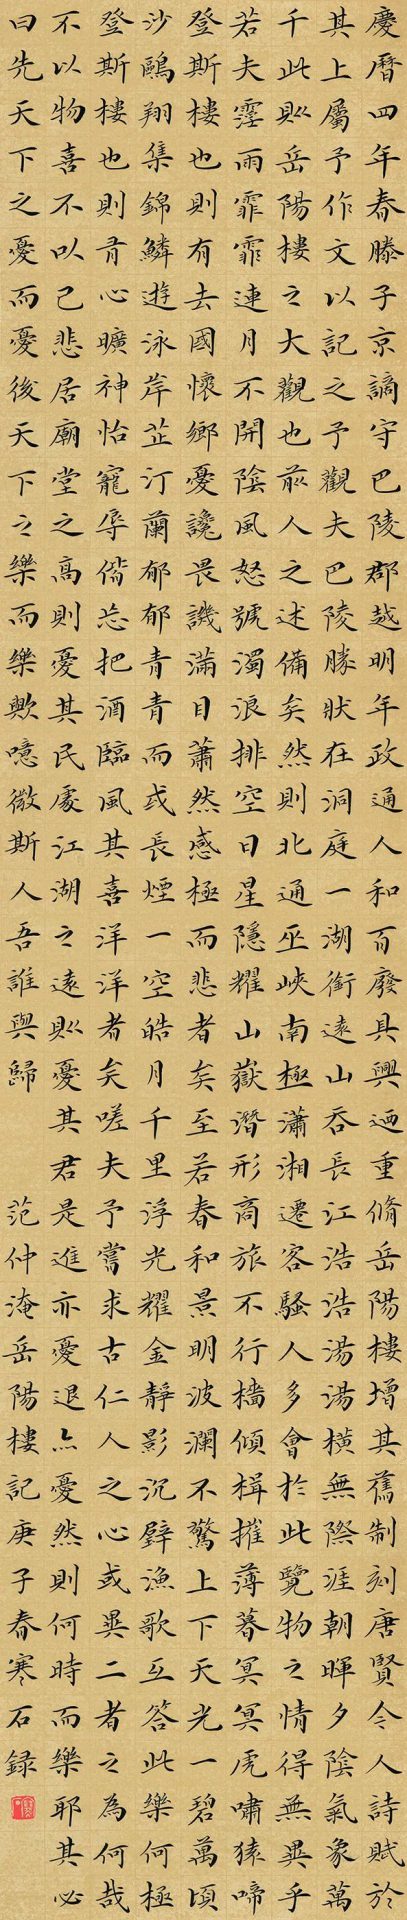 慶曆四年春滕子京謫守巴陵郡越明年政通人和百廢具興迺重脩岳陽樓增其舊制刻唐賢今人詩賦於
其上屬予作文以記之予觀夫巴陵勝狀在洞庭一湖銜遠山吞長江浩浩湯湯橫無際涯朝暉夕陰氣象萬
千此則岳陽樓之大觀也前人之述備矣然則北通巫峽南極瀟湘遷客騷人多會於此覽物之情得無異乎
若夫霪雨霏霏連月不開陰風怒號濁浪排空日星隱耀山嶽潛形商旅不行檣傾楫摧薄暮冥冥虎嘯猿啼
登斯樓也則有去國懷鄉憂讒畏譏滿目蕭然感極而悲者矣至若春和景明波瀾不驚上下天光一碧萬頃
沙鷗翔集錦鱗遊泳岸芷汀蘭郁郁青青而或長煙一空皓月千里浮光耀金靜影沉璧漁歌互答此樂何極
登斯樓也則有心曠神怡寵辱偕忘把酒臨風其喜洋洋者矣嗟夫予嘗求古仁人之心或異二者之為何哉
不以物喜不以己悲居廟堂之高則憂其民處江湖之遠則憂其君是進亦憂退亦憂然則何時而樂耶其必
曰先天下之憂而憂後天下之樂而樂歟噫微斯人吾誰與歸 范仲淹岳陽樓記庚子春寒石録